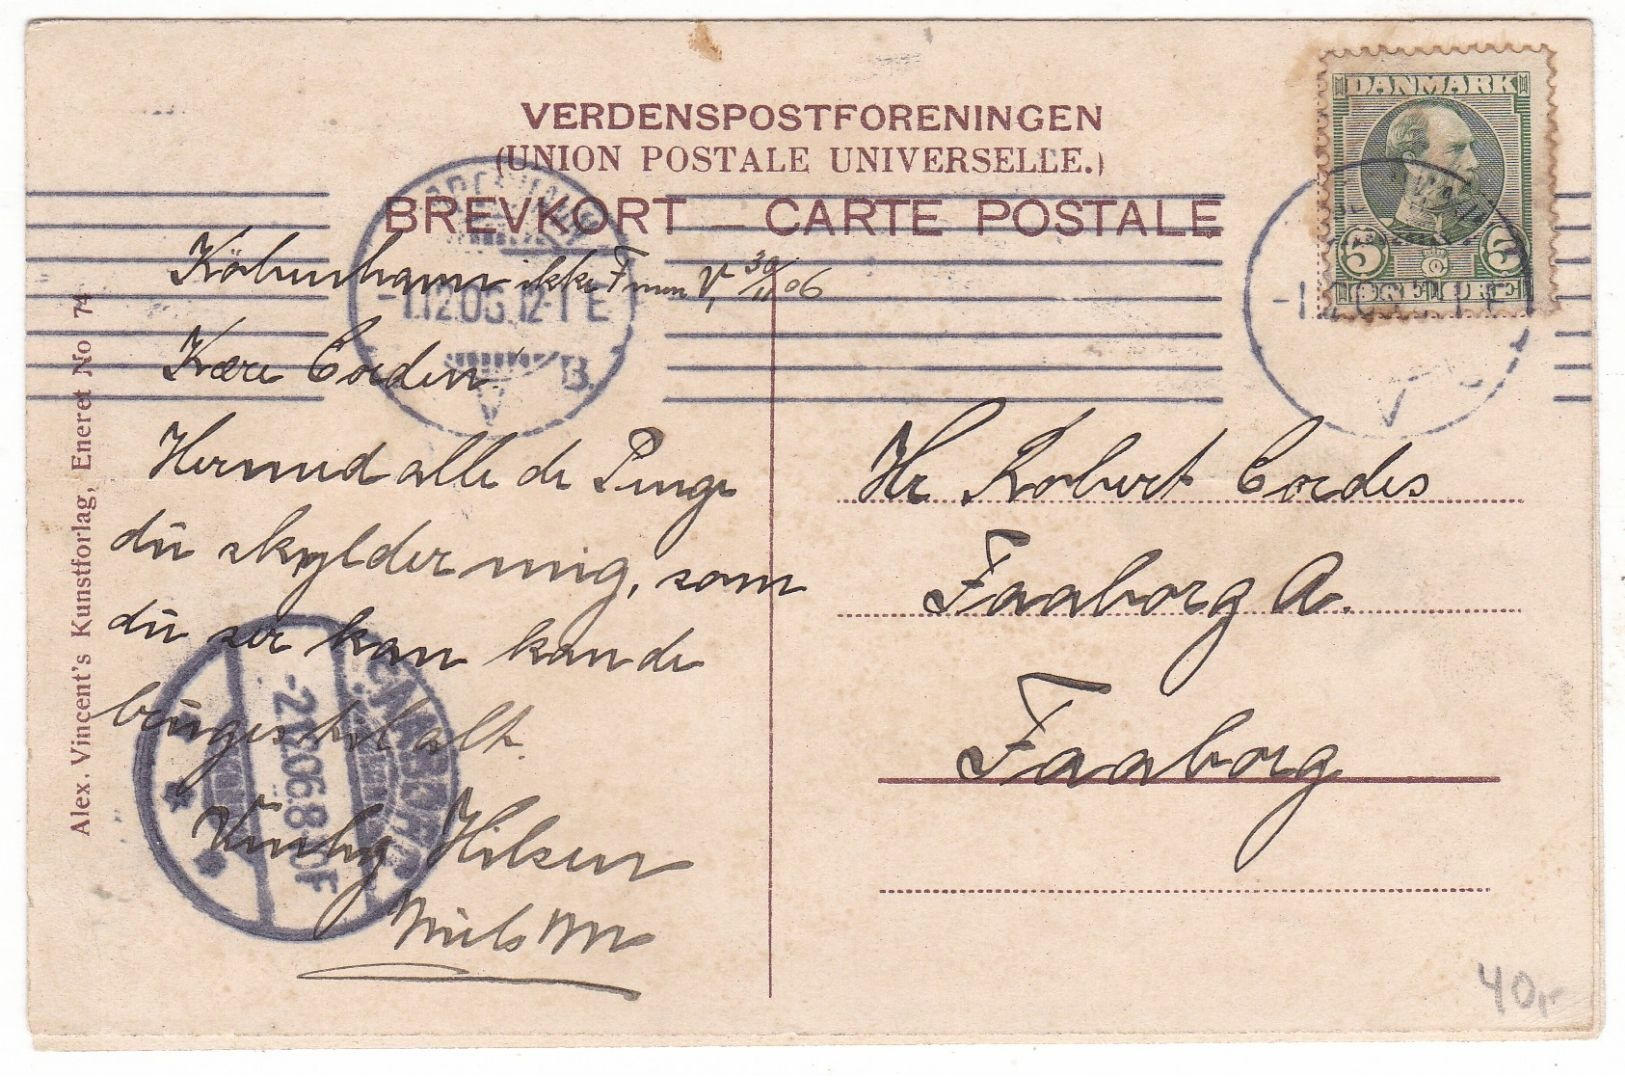 VERDENSPOSTFORENINGEN
(UNION POSTALE UNIVERSELLE.)
BREVKORT – CARTE POSTALE
DANMARK
5 5
ØRE ØRE
København ikke V, 30/11 06
-1.12.06. 12-1 E
B.
Kære Corden
Hermed alle de Penge
dū skylder mig, som
dū ser kan kan de
brūges til alt.
Venlig Hilsen
Niels
-2.12.06. 8-
Alex. Vincent's Kunstforlag, Eneret No 74
Hr Robert Cordes
Faaborg A.
Faaborg
40,-